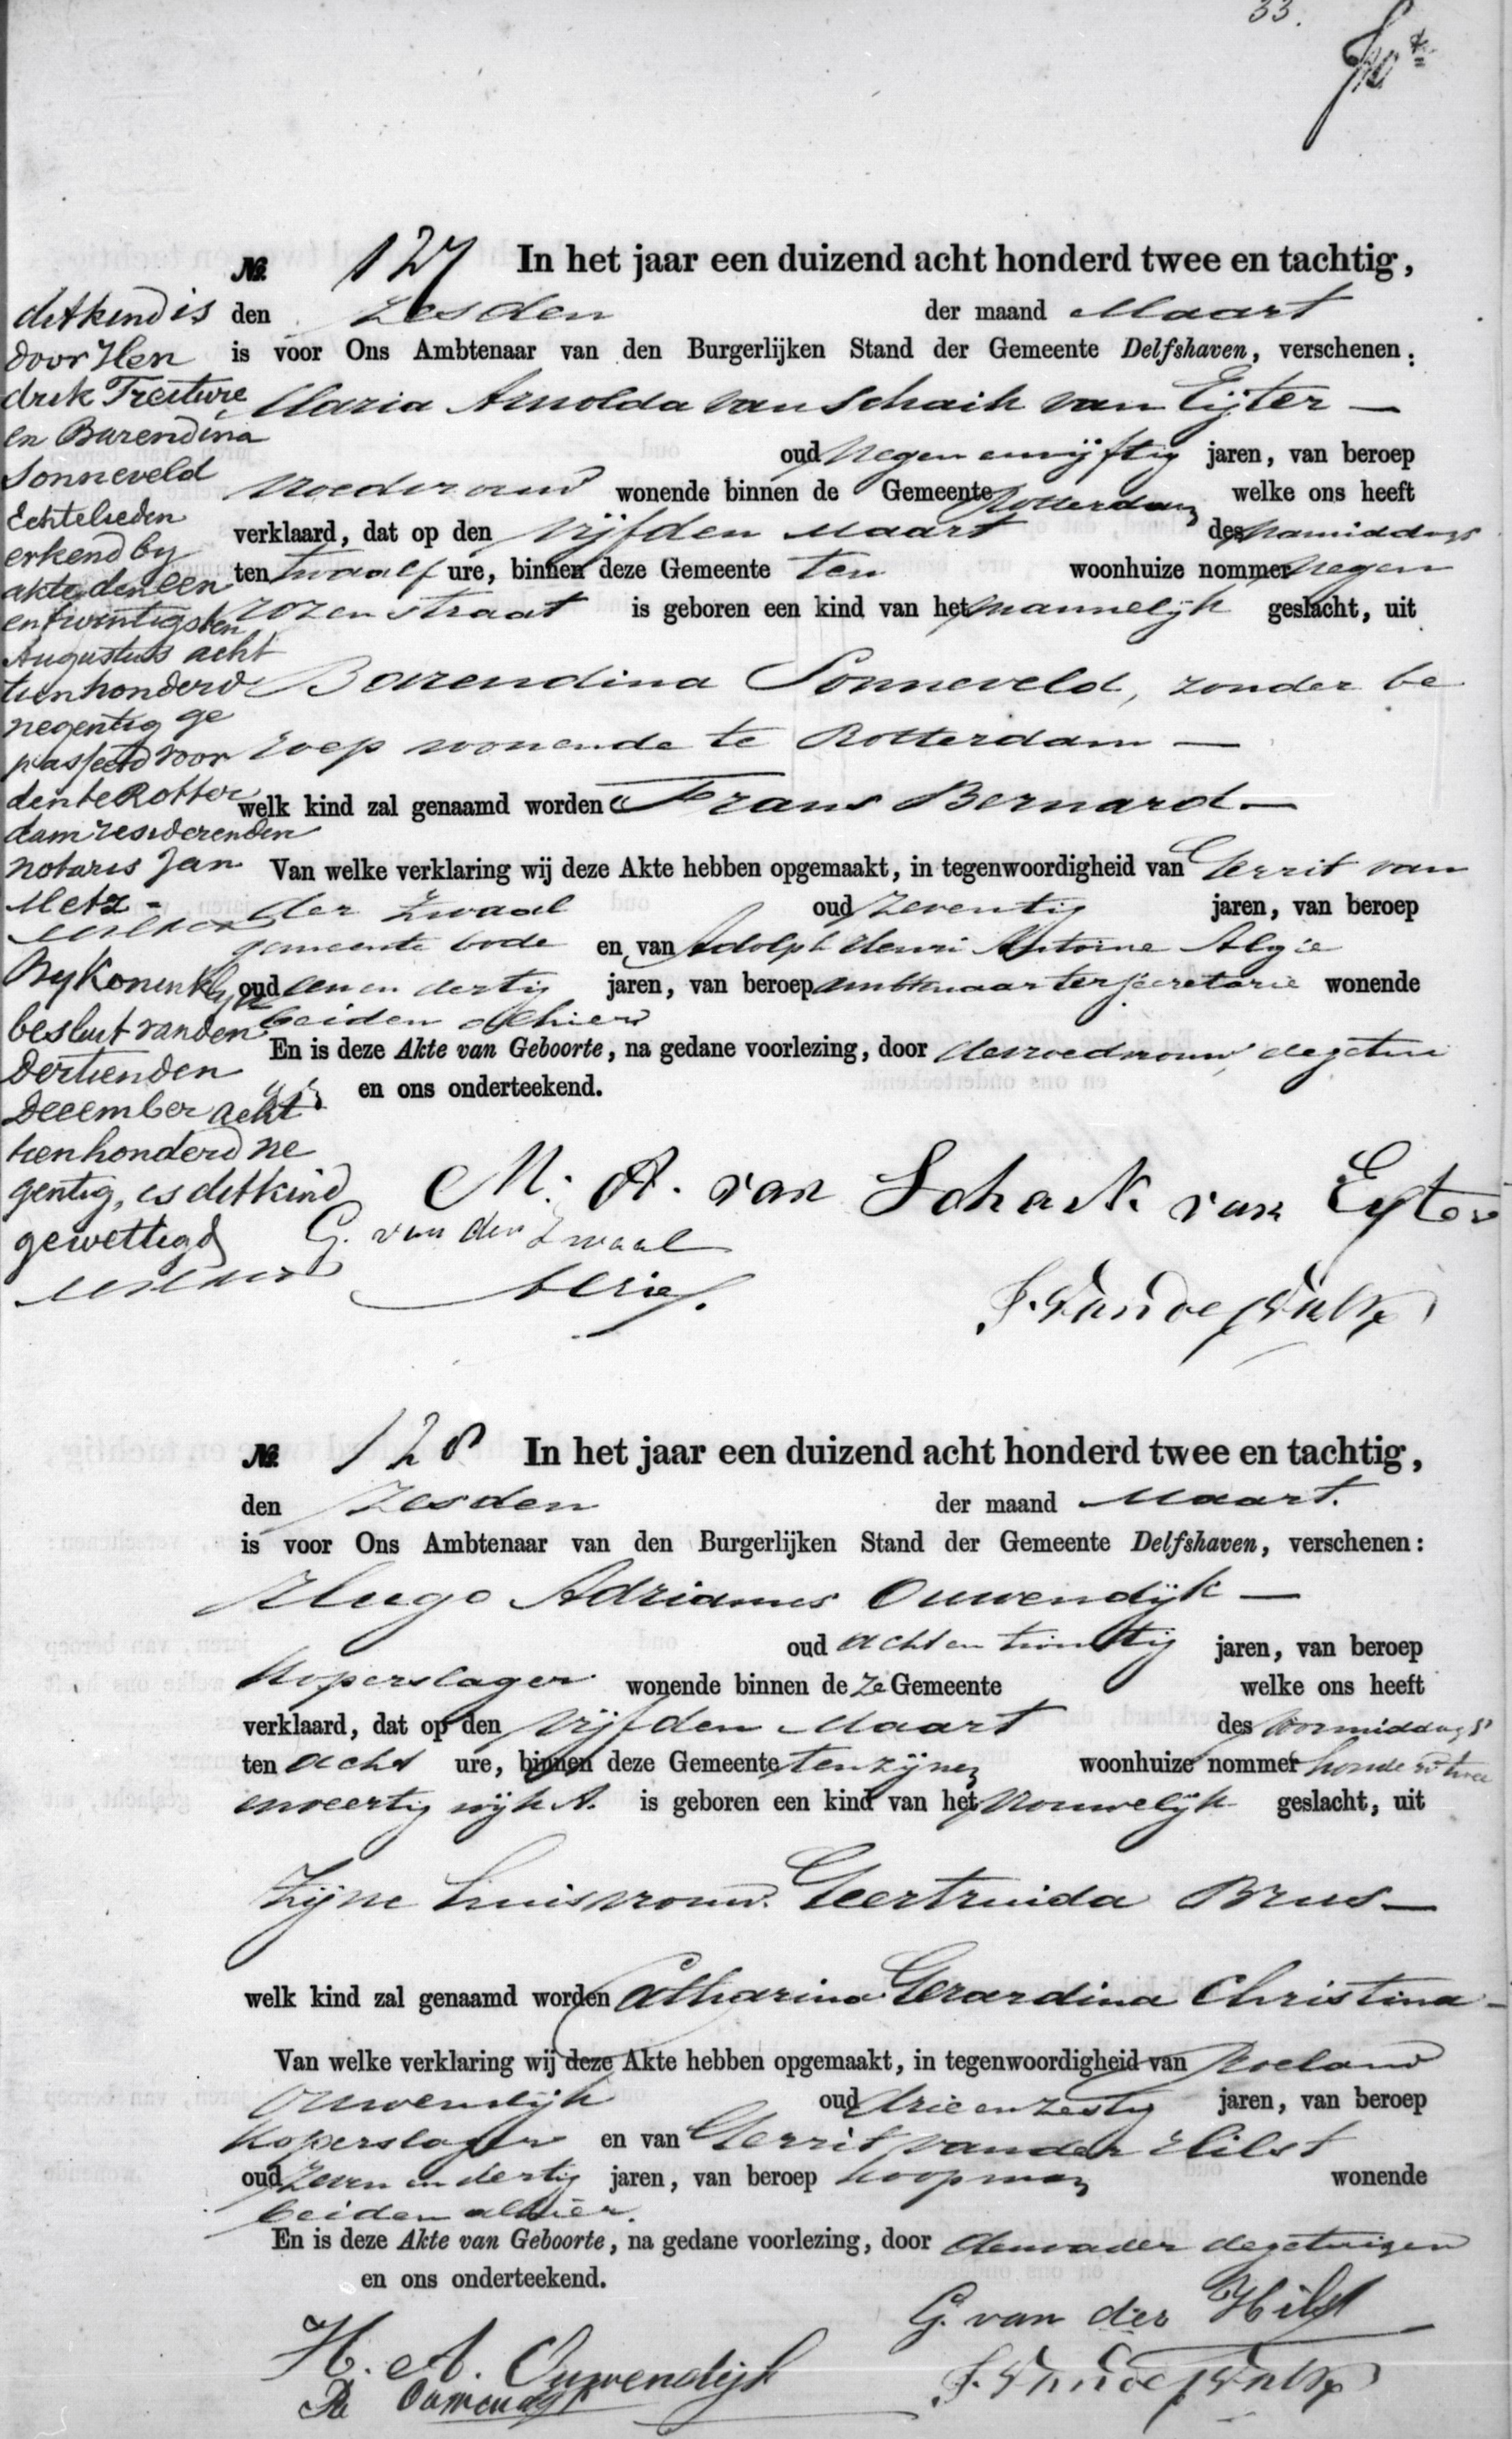 33.
No. 127 In het jaar een duizend acht honderd twee en tachtig,
den zesden der maand Maart
is voor Ons Ambtenaar van den Burgerlijken Stand der Gemeente Delfshaven, verschenen:
Maria Arnolda van Schaik van Eijter —
oud negen en vijftig jaren, van beroep
vroedvrouw wonende binnen de Gemeente Rotterdam welke ons heeft
verklaard, dat op den vijfden Maart des namiddags
ten twaalf ure, binnen deze Gemeente ten woonhuize nommer negen
rozenstraat is geboren een kind van het mannelijk geslacht, uit
Barendina Sonneveld, zonder be
roep wonende te Rotterdam —
welk kind zal genaamd worden Frans Bernard —
Van welke verklaring wij deze Akte hebben opgemaakt, in tegenwoordigheid van Gerrit van
der Zwaal oud zeventig jaren, van beroep
gemeente bode en van Adolph Henri Antoine
oud een en dertig jaren, van beroep ambtenaar ter secretarie wonende
beiden alhier
En is deze Akte van Geboorte, na gedane voorlezing, door de vroedvrouw, de getui
gen en ons onderteekend.
M. A. van Schaik van Eyter
G. van der Zwaal
dit kind is
door Hen
drik Treiture
en Barendina
Sonneveld
Echtelieden
erkend by
akte den een
en twintigsten
Augustus acht
tienhonderd
negentig ge
passeerd voor
den te Rotter
dam resideerenden
notaris Jan
Metz -
By Koninklyk
besluit van den
Dertienden
December acht
tienhonderd ne
gentig, is dit kind
gewettigd
No. 128 In het jaar een duizend acht honderd twee en tachtig,
den zesden der maand Maart.
is voor Ons Ambtenaar van den Burgerlijken Stand der Gemeente Delfshaven, verschenen:
Hugo Adrianus Ouwendijk —
oud acht en twintig jaren, van beroep
Koperslager wonende binnen de ze Gemeente welke ons heeft
verklaard, dat op den vijfden Maart des voormiddags
ten acht ure, binnen deze Gemeente ten zijnen woonhuize nommer honderd twee
en veertig wijk A. is geboren een kind van het vrouwelijk geslacht, uit
Zijne huisvrouw Geertruida Brus —
welk kind zal genaamd worden Catharina Gerardina Christina —
Van welke verklaring wij deze Akte hebben opgemaakt, in tegenwoordigheid van Roeland
Ouwendijk oud drie en zestig jaren, van beroep
Koperslager en van Gerrit van der Hilst
oud zeven en dertig jaren, van beroep koopman wonende
beiden alhier.
En is deze Akte van Geboorte, na gedane voorlezing, door den vader de getuigen
en ons onderteekend.
G. van der Hilst
H. A. Ouwendijk
R Ouwendijk